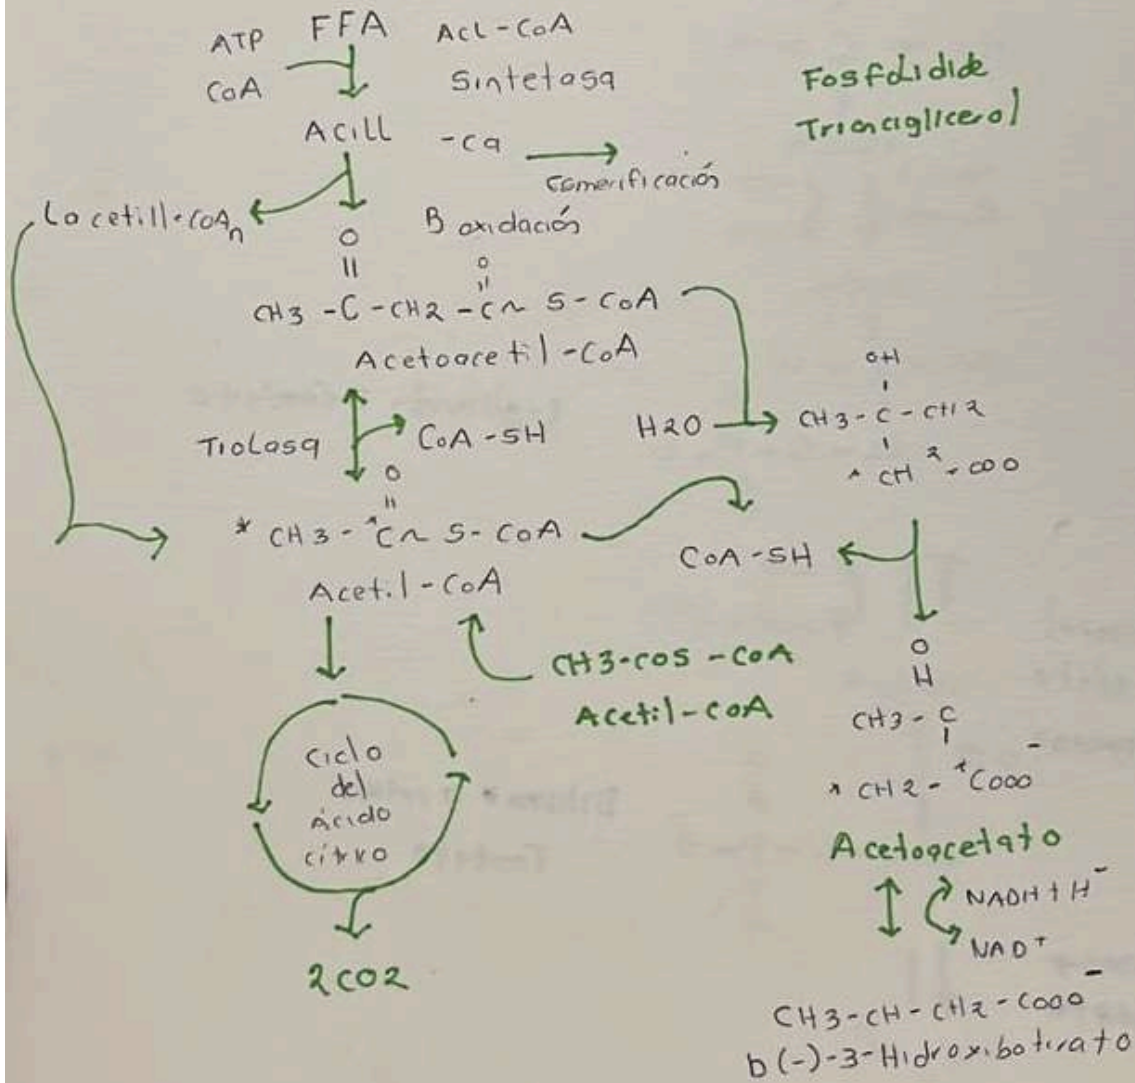 ATP FFA Acl-CoA
CoA Sintetasa
Fosfolidide
Trionciglicerol
Acill -ca
Lacetill-CoAn B oxidación
O O
CH3 -C -CH2 -C~ S-CoA
Acetoacetil-CoA
OH
Tiolasa CoA-SH H2O CH3-C-CH2
CH2 COO
O
* CH3-*C~ S-CoA
CoA-SH
Acetil-CoA
CH3-COS-CoA
Acetil-CoA
O
H
CH3-C
* CH2-*Cooo-
Ciclo
del
ácido
cítrico
Acetoacetato
NADH+H-
NAD+
2CO2
CH3-CH-CH2-Cooo-
D(-)-3-Hidroxibotirato